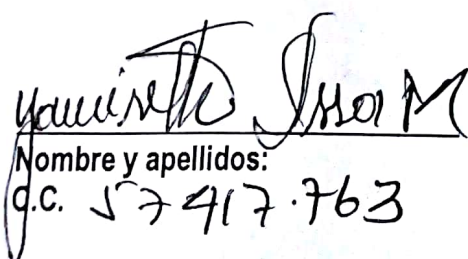 Yamiseth Issa M
Nombre y apellidos:
C.C. 57417.763